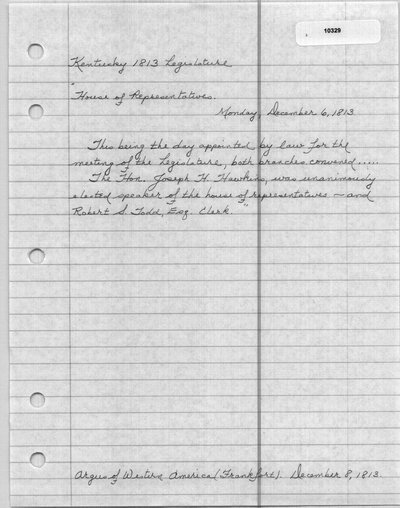 10329
Kentusky 1813 Legislature
"House of Representatives.
Monday, December 6, 1813
This being the day appointed by law for the
meeting of the Legislature, both branches convened.....
The Hon. Joseph H. Hawkins, was unanimously
elected speaker of the house of representatives - and
Robert S. Todd, Esq. Clerk."
Argus of Western America (Frankfort). December 8, 1813.